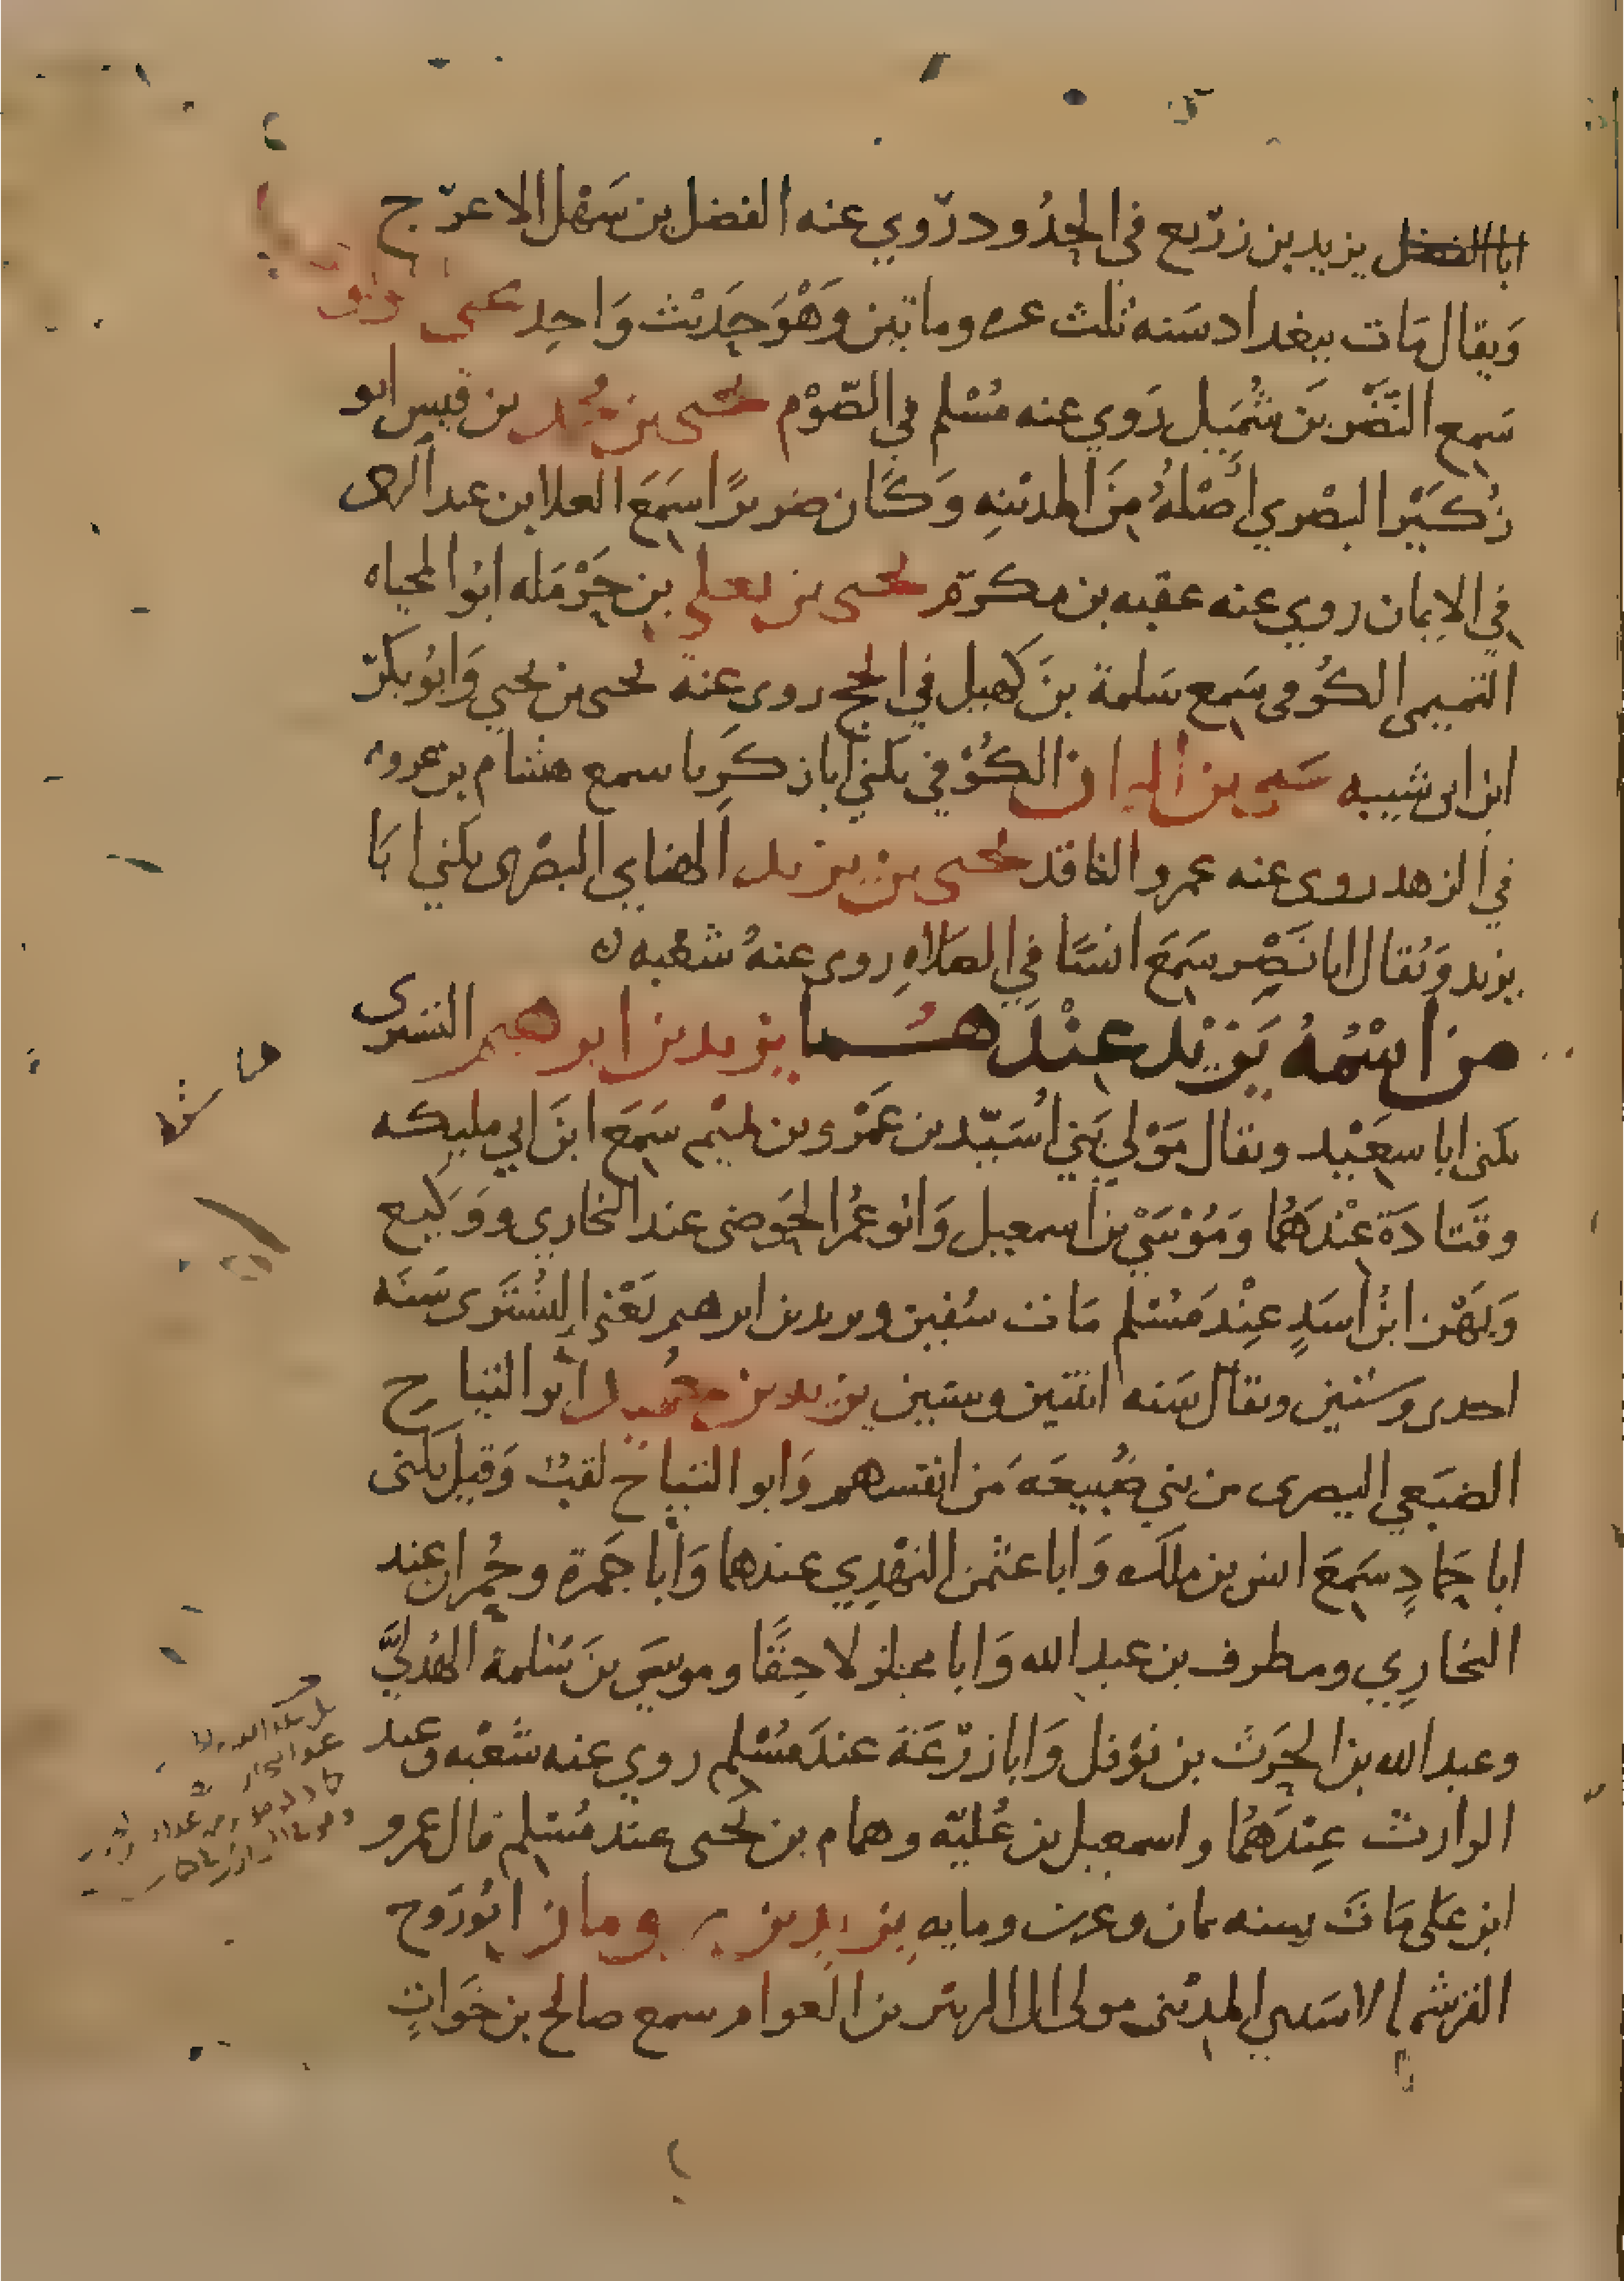 ابا الفضل يزيد بن زريع في الحدود روي عنه الفضل بن سهل الاعرج
ويقال مات ببغداد سنه ثلث عشره وماتين وهو حديث واحد
سمع النضر بن شميل روي عنه مسلم في الصوم يحيى بن محمد بن قيس ابو
زكير البصري أصله من المدينه وكان ضريرا سمع العلا بن عبد الرحمن
في الايمان روي عنه عقبه بن مكرم يحيى بن يعلي بن حرملة ابوا المحياه
التميمي الكوفي سمع سلمة بن كهيل في الحج روى عنه يحيى بن يحيي وابو بكر
ابن ابي شيبه يحيى بن اليمان الكوفي يكني ابا زكريا سمع هشام بن عروه
في الزهد روى عنه عمرو الناقد يحيى بن يزيد الهنايي البصرى يكني ابا
يزيد ويقال ابا نصر سمع انسا في الصلاه روى عنه شعبه
من اسمه يزيد عندهما يزيد بن ابرهيم التستري
يكنى ابا سعيد ويقال مولي بني اسيد بن عمرو بن تميم سمع ابن ابي مليكه
وقتادة عندهما وموسي بن اسمعيل وابو عمر الحوضي عند البخاري ووكيع
وبهز ابن اسد عند مسلم مات سفين ويزيد بن ابرهيم يعني التستري سنه
احدى وستين ويقال سنه اثنتين وستين يزيد بن حميد ابو التياح
الضبعي البصرى من بني ضبيعه من انفسهم وابو التياح لقب وقيل يكنى
ابا حماد سمع انس بن ملك وابا عثمن النهدي عندهما وابا جمرة وحمران عند
البخاري ومطرف بن عبد الله وابا مجلز لاحقا وموسي بن سلمة الهذلي
وعبد الله بن الحرث بن نوفل وابا زرعة عند مسلم روي عنه شعبه وعبد
الوارث عندهما واسمعيل بن عليه وهمام بن يحيى عند مسلم قال عمرو
ابن على مات سنه ثمان وعشرين ومايه يزيد بن رومان ابو روح
القرشي الاسدي المديني مولى ال الزبير بن العوام سمع صالح بن خوات